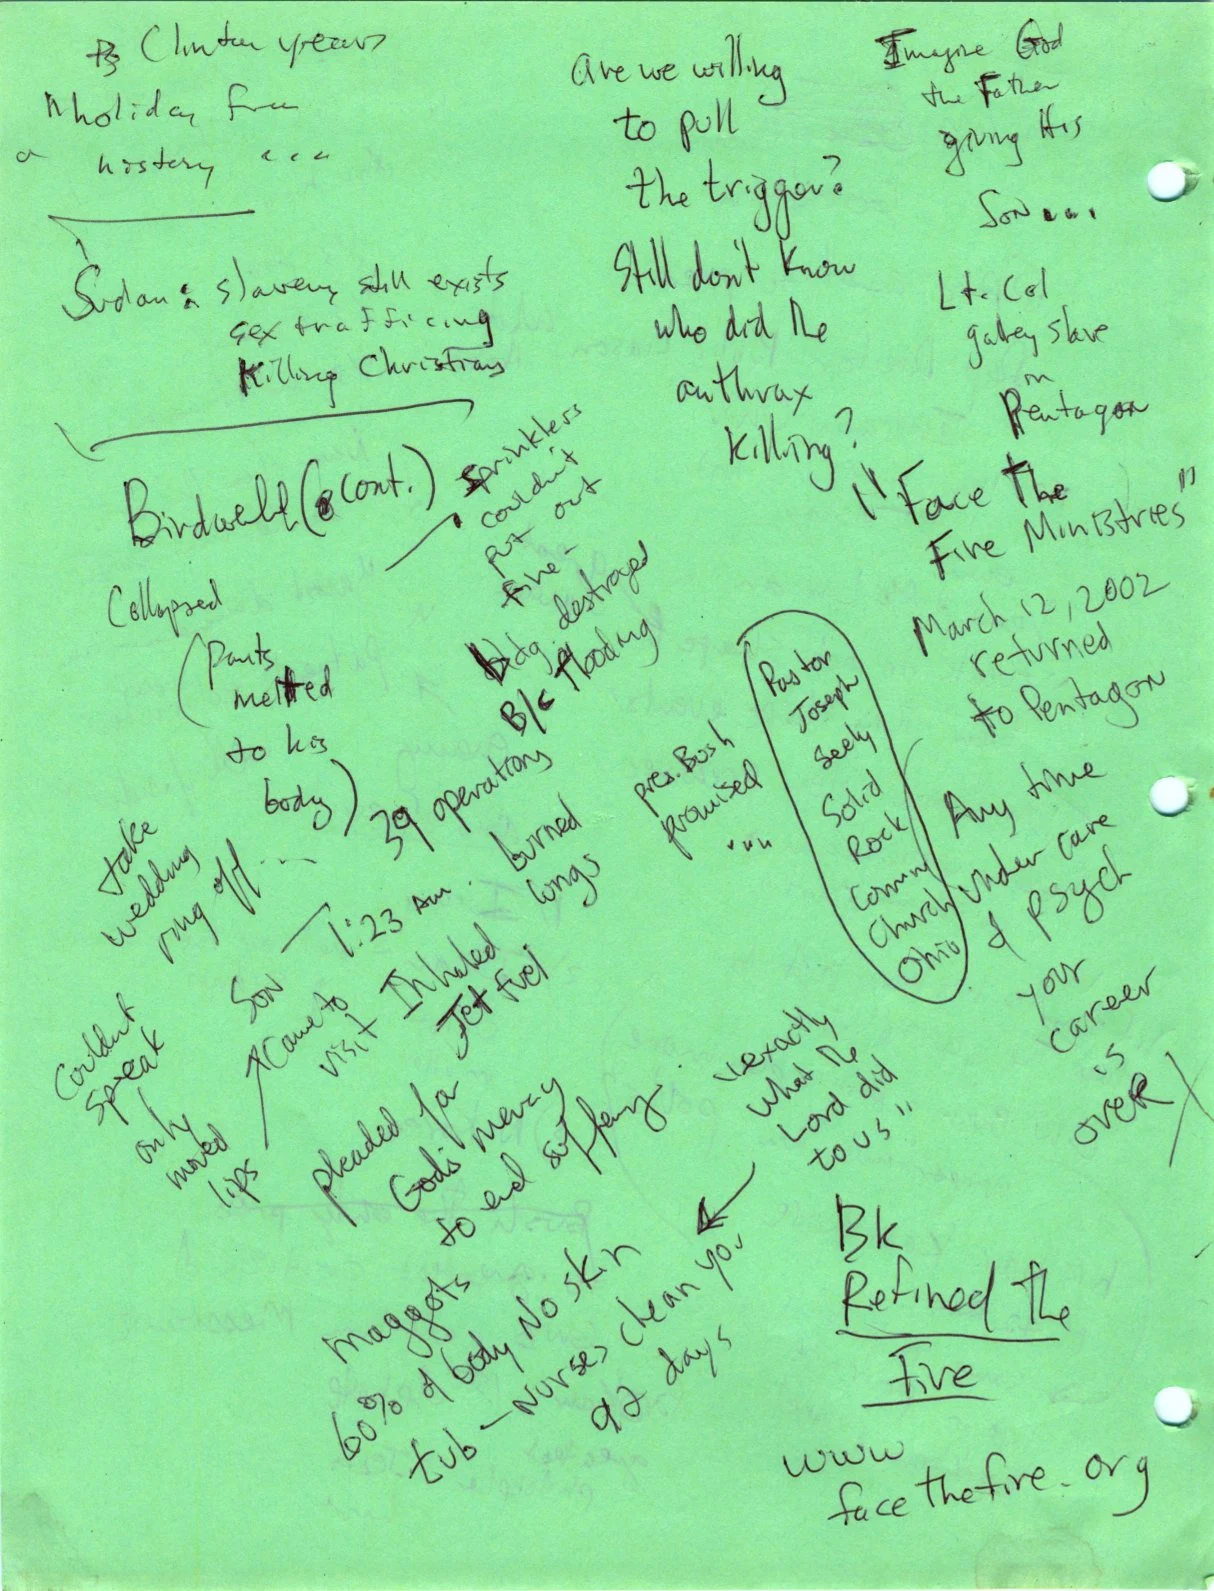 Clinton years
"holiday from
a history ...
Sudan: slavery still exists
sex trafficing
Killing Christians
Birdwell (cont.)
Collapsed
(pants
melted
to his
body)
sprinklers
couldn't
put out
fire -
bldg. destroyed
B/c flooding
39 operations
take
wedding
ring off ...
1:23 Am. burned
lungs
Son
Came to
visit
Inhaled
Jet fuel
Couldnt
speak
only
moved
lips
pleaded for
God's mercy
to end suffering.
maggots
60% of body No skin
tub - Nurses clean you
92 days
are we willing
to pull
the trigger?
Still don't know
who did the
anthrax
killing?
pres. Bush
promised
...
Pastor
Joseph
Seely
Solid
Rock
Comm
Church
Ohio
"exactly
what the
Lord did
to us"
Imagine God
the Father
giving His
Son....
Lt. Col
galley slave
in
Pentagon
"Face The
Fire Ministries"
March 12, 2002
returned
to Pentagon
Any time
under care
of psych
your
career
is
over
Bk
Refined the
Fire
www
facethefire.org